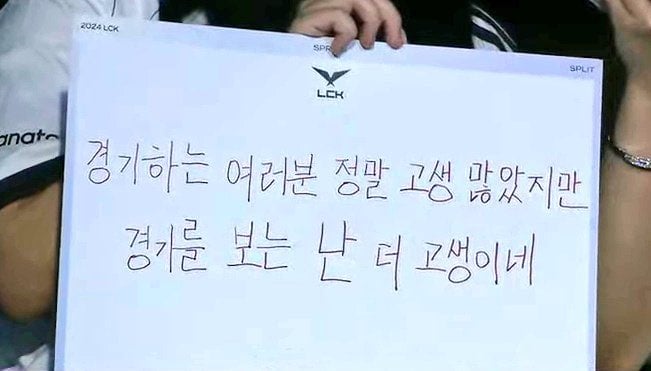 2024 LCK
SPR
SPLIT
LCK
anato
경기하는 여러분 정말 고생 많았지만
경기를 보는 난 더 고생이네